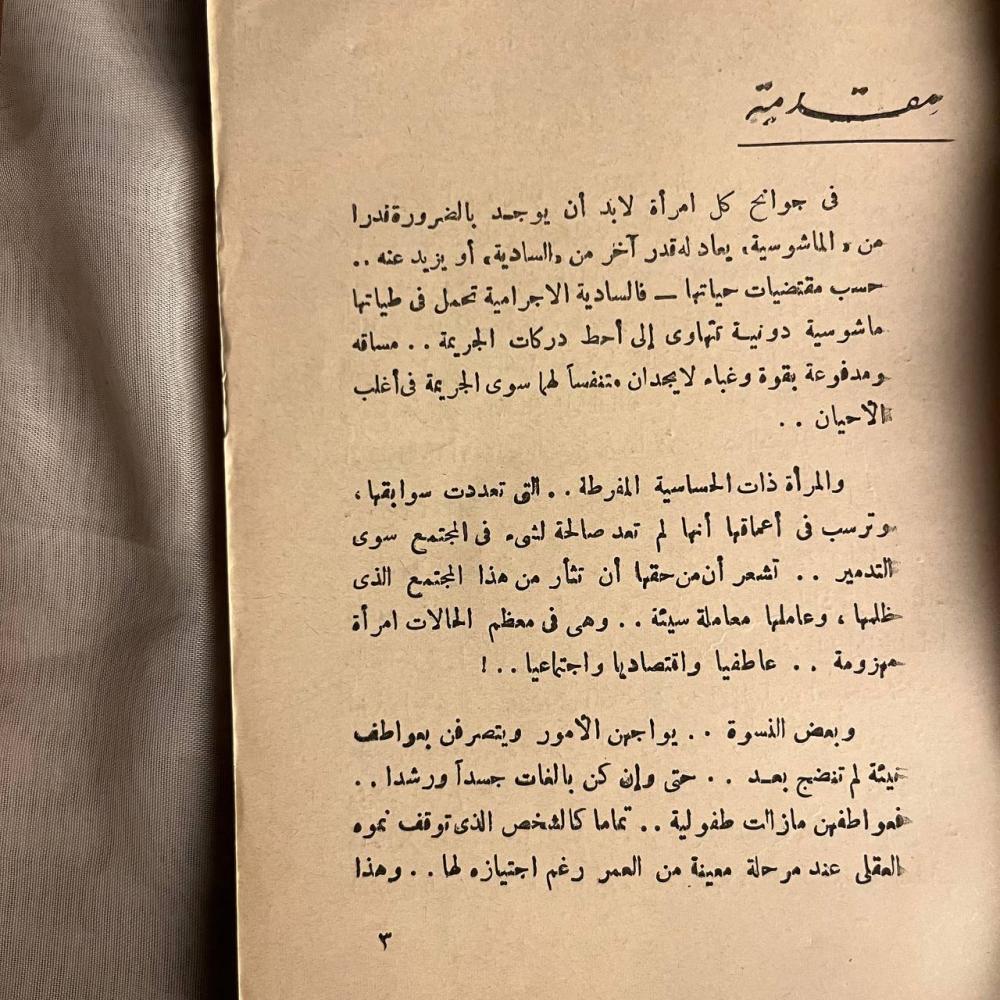 مقدمة
فى جوانح كل امرأة لابد أن يوجد بالضرورة قدرا
من «الماشوسية» يعادله قدر آخر من «السادية» أو يزيد عنه ..
حسب مقتضيات حياتها — فالسادية الاجرامية تحمل فى طياتها
ماشوسية دونية تتهاوى إلى أحط دركات الجريمة .. مساقه
ومدفوعة بقوة وغباء لايجدان متنفساً لهما سوى الجريمة فى أغلب
الأحيان ..
والمرأة ذات الحساسية المفرطة .. التى تعددت سوابقها ،
وترسب فى أعماقها أنها لم تعد صالحة لشىء فى المجتمع سوى
التدمير .. تشعر أن من حقها أن تثأر من هذا المجتمع الذى
ظلمها ، وعاملها معاملة سيئة .. وهى فى معظم الحالات امرأة
مهزومة .. عاطفيا واقتصاديا واجتماعيا .. !
وبعض النسوة .. يواجهن الأمور ويتصرفن بعواطف
نيئة لم تنضج بعد .. حتى وإن كن بالغات جسداً ورشدا ..
فعواطفهن مازالت طفولية .. تماما كالشخص الذى توقف نموه
العقلى عند مرحلة معينة من العمر رغم اجتيازه لها .. وهذا
٣